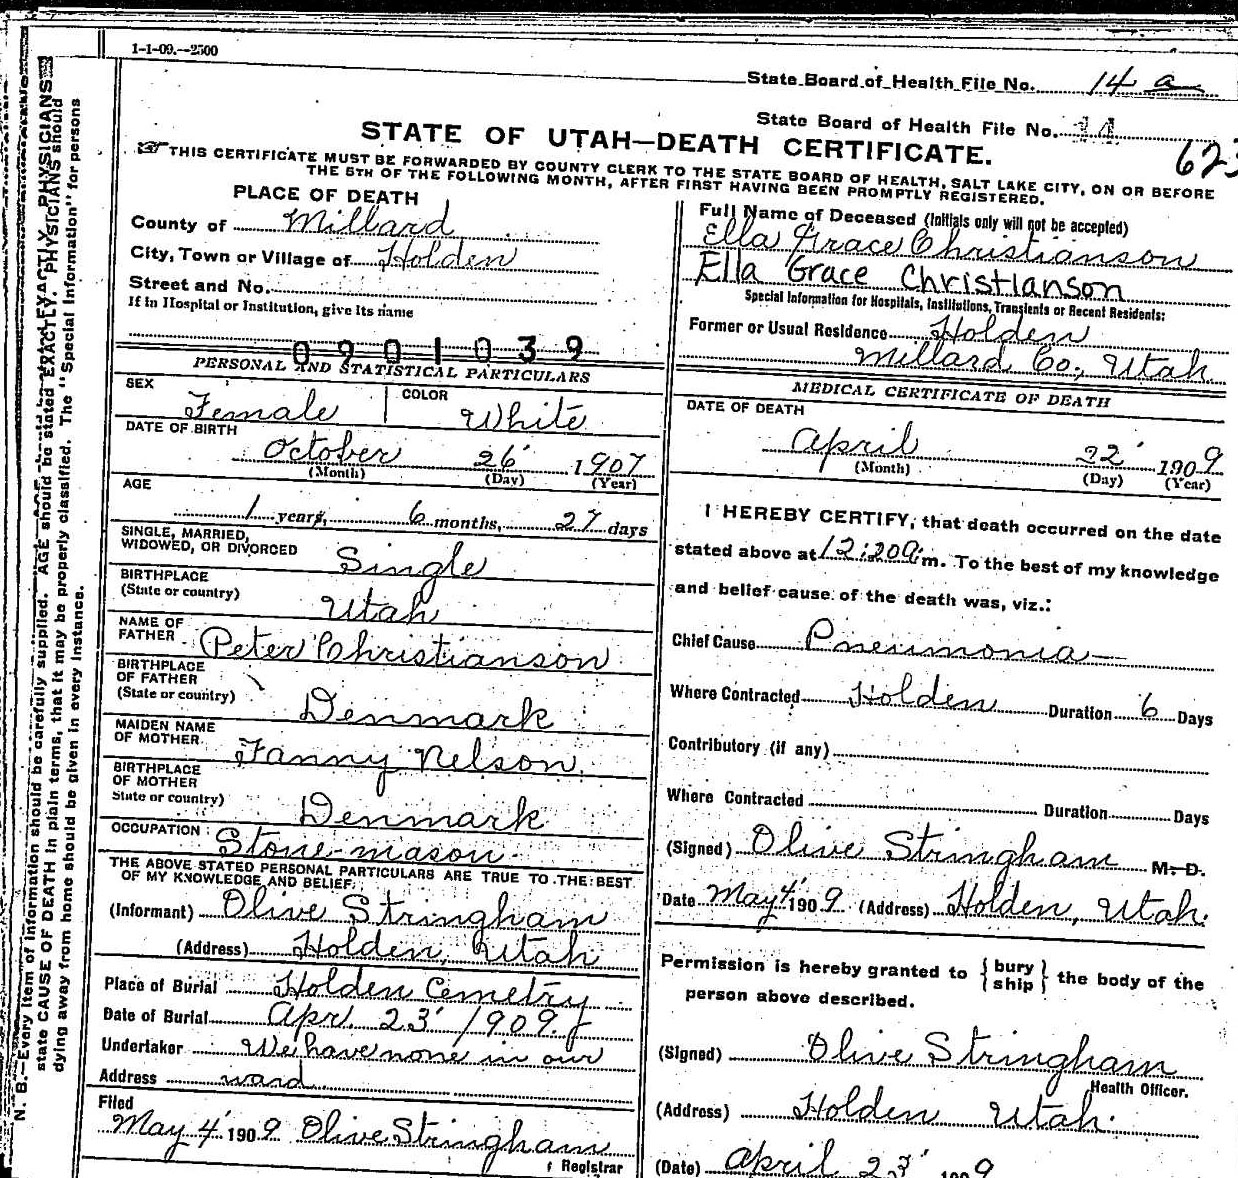 1-1-09.--2500
State Board of Health File No. 14 a
State Board of Health File No. 14
623
STATE OF UTAH—DEATH CERTIFICATE.
THIS CERTIFICATE MUST BE FORWARDED BY COUNTY CLERK TO THE STATE BOARD OF HEALTH, SALT LAKE CITY, ON OR BEFORE
THE 5TH OF THE FOLLOWING MONTH, AFTER FIRST HAVING BEEN PROMPTLY REGISTERED.
PLACE OF DEATH
County of Millard
City, Town or Village of Holden
Street and No.
If in Hospital or Institution, give its name
0901039
PERSONAL AND STATISTICAL PARTICULARS
SEX Female
COLOR White
DATE OF BIRTH
October 26 1907
(Month) (Day) (Year)
AGE
1 years, 6 months, 27 days
SINGLE, MARRIED,
WIDOWED, OR DIVORCED Single
BIRTHPLACE
(State or country) Utah
NAME OF
FATHER Peter Christianson
BIRTHPLACE
OF FATHER
(State or country) Denmark
MAIDEN NAME
OF MOTHER Fanny Nelson
BIRTHPLACE
OF MOTHER
State or country) Denmark
OCCUPATION Stone-mason
THE ABOVE STATED PERSONAL PARTICULARS ARE TRUE TO THE BEST
OF MY KNOWLEDGE AND BELIEF.
(Informant) Olive Stringham
(Address) Holden, Utah
Place of Burial Holden Cemetry
Date of Burial Apr. 23' 1909.
Undertaker We have none in our
Address ward
Filed
May 4' 1909 Olive Stringham
Registrar
Full Name of Deceased (Initials only will not be accepted)
Ella Grace Christianson
Ella Grace Christianson
Special Information for Hospitals, Institutions, Transients or Recent Residents:
Former or Usual Residence Holden
Millard Co., Utah
MEDICAL CERTIFICATE OF DEATH
DATE OF DEATH
April 22' 1909
(Month) (Day) (Year)
I HEREBY CERTIFY, that death occurred on the date
stated above at 12:20 a.m. To the best of my knowledge
and belief cause of the death was, viz.:
Chief Cause Pneumonia
Where Contracted Holden Duration 6 Days
Contributory (if any)
Where Contracted Duration Days
(Signed) Olive Stringham M. D.
Date May 4' 1909 (Address) Holden, Utah.
Permission is hereby granted to { bury ship } the body of the
person above described.
(Signed) Olive Stringham
Health Officer.
(Address) Holden Utah.
(Date) April 23' 1909
N. B.—Every item of information should be carefully supplied. AGE should be stated EXACTLY. PHYSICIANS should
state CAUSE OF DEATH in plain terms, that it may be properly classified. The "Special Information" for persons
dying away from home should be given in every instance.